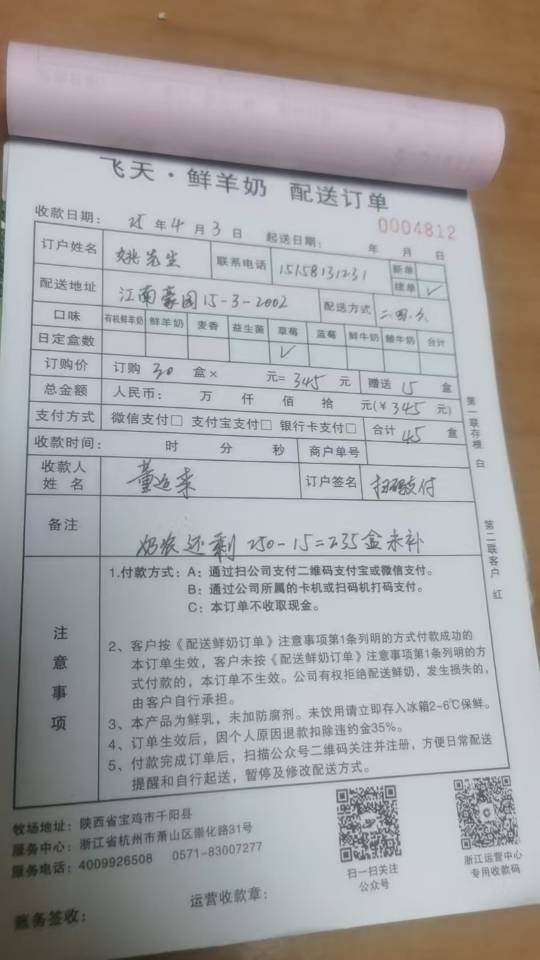 飞天·鲜羊奶 配送订单
0004812
收款日期：25年4月3日 起送日期： 年 月 日
订户姓名 姚先生 联系电话 15158131231 新单
续单 ✓
配送地址 江南豪园15-3-2002 配送方式 二四六
口味 有机鲜羊奶 鲜羊奶 麦香 益生菌 草莓 蓝莓 鲜牛奶 酸牛奶 合计
日定盒数 ✓
订购价 订购 30 盒× 元=345元 赠送 15 盒
总金额 人民币： 万 仟 佰 拾 元(￥345元)
支付方式 微信支付□ 支付宝支付□ 银行卡支付□ 合计 45 盒
收款时间： 时 分 秒 商户单号
收款人姓名 董运来 订户签名 扫码支付
备注 奶农还剩 250-15=235盒未补
注意事项
1.付款方式：A：通过扫公司支付二维码支付宝或微信支付。
B：通过公司所属的卡机或扫码机打码支付。
C：本订单不收取现金。
2、客户按《配送鲜奶订单》注意事项第1条列明的方式付款成功的
本订单生效，客户未按《配送鲜奶订单》注意事项第1条列明的方
式付款的，本订单不生效。公司有权拒绝配送鲜奶，发生损失的，
由客户自行承担。
3、本产品为鲜乳，未加防腐剂。未饮用请立即存入冰箱2-6℃保鲜。
4、订单生效后，因个人原因退款扣除违约金35%。
5、付款完成订单后，扫描公众号二维码关注并注册，方便日常配送
提醒和自行起送，暂停及修改配送方式。
第一联存根 白
第二联客户 红
牧场地址：陕西省宝鸡市千阳县
服务中心：浙江省杭州市萧山区崇化路31号
服务电话：4009926508 0571-83007277
扫一扫关注
公众号
浙江运营中心
专用收款码
账务签收： 运营收款章：